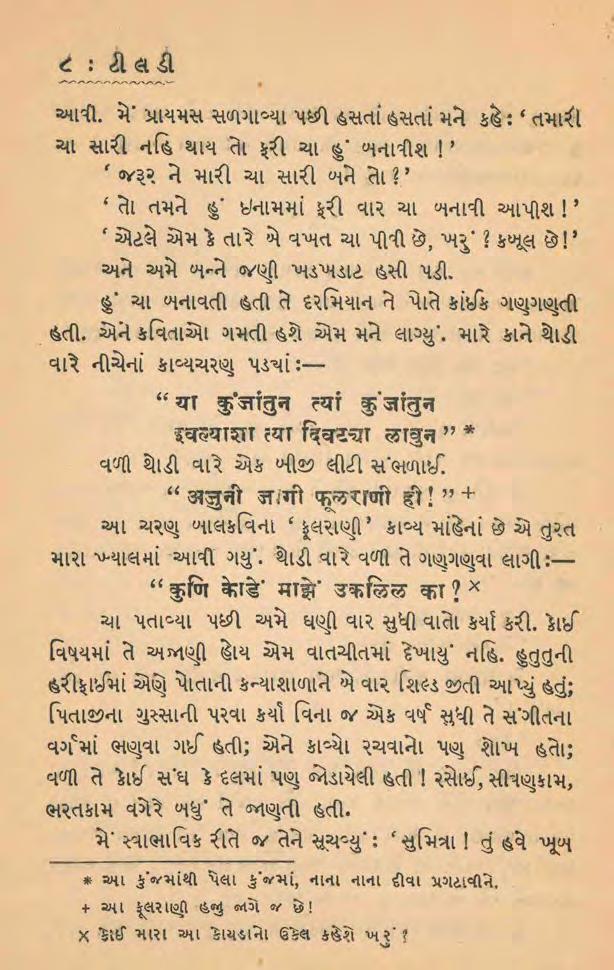 ૮ : ટીલડી
આવી. મેં પ્રાયમસ સળગાવ્યા પછી હસતાં હસતાં મને કહે: ‘ તમારી
ચા સારી નહિ થાય તો ફરી ચા હું બનાવીશ ! ’
‘ જરૂર ને મારી ચા સારી બને તો ? ’
‘ તો તમને હું ઇનામમાં ફરી વાર ચા બનાવી આપીશ ! ’
‘ એટલે એમ કે તારે બે વખત ચા પીવી છે, ખરું ? કબૂલ છે! ’
અને અમે બન્ને જણી ખડખડાટ હસી પડી.
હું ચા બનાવતી હતી તે દરમિયાન તે પોતે કાંઈક ગણગણતી
હતી. એને કવિતાઓ ગમતી હશે એમ મને લાગ્યું. મારે કાને થોડી
વારે નીચેનાં કાવ્યચરણ પડયાં :—
“ या कुंजांतुन त्यां कुंजांतुन
इवल्याशा त्या दिवट्या लावुन ” *
વળી થોડી વારે એક બીજી લીટી સંભળાઈ.
“ अजुनी जागी फूलराणी ही ! ” +
આ ચરણ બાલકવિના ‘ ફૂલરાણી ’ કાવ્ય માંહેનાં છે એ તુરત
મારા ખ્યાલમાં આવી ગયું. થોડી વારે વળી તે ગણગણવા લાગી :—
“ कुणि कोडें माझें उकलिल का ? ×
ચા પતાવ્યા પછી અમે ઘણી વાર સુધી વાતો કર્યા કરી. કોઈ
વિષયમાં તે અજાણી હોય એમ વાતચીતમાં દેખાયું નહિ. હુતુતુની
હરીફાઈમાં એણે પોતાની કન્યાશાળાને બે વાર શિલ્ડ જીતી આપ્યું હતું;
પિતાજીના ગુસ્સાની પરવા કર્યા વિના જ એક વર્ષ સુધી તે સંગીતના
વર્ગમાં ભણવા ગઈ હતી; એને કાવ્યો રચવાનો પણ શોખ હતો;
વળી તે કોઈ સંઘ કે દલમાં પણ જોડાયેલી હતી ! રસોઈ, સીવણકામ,
ભરતકામ વગેરે બધું તે જાણતી હતી.
મેં સ્વાભાવિક રીતે જ તેને સૂચવ્યું : ‘ સુમિત્રા ! તું હવે ખૂબ
* આ કુંજમાંથી પેલા કુંજમાં, નાના નાના દીવા પ્રગટાવીને.
+ આ ફૂલરાણી હજુ જાગે જ છે !
× કોઈ મારા આ કોયડાનો ઉકેલ કહેશે ખરું ?